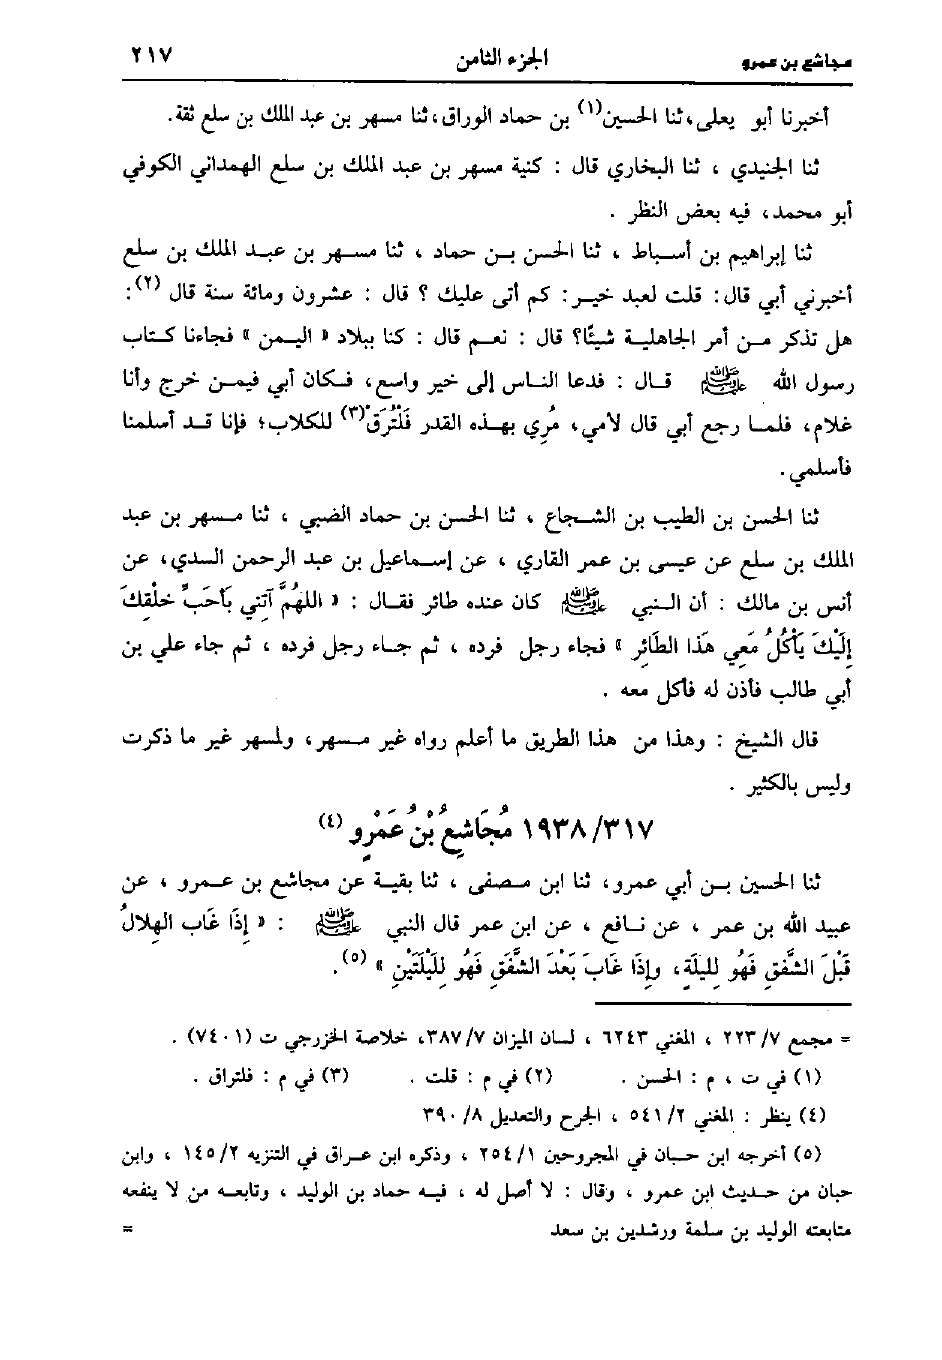 مجاشع بن عمرو الجزء الثامن ٢١٧
أخبرنا أبو يعلى، ثنا الحسين(١) بن حماد الوراق، ثنا مسهر بن عبد الملك بن سلع ثقة.
ثنا الجنيدي ، ثنا البخاري قال : كنية مسهر بن عبد الملك بن سلع الهمداني الكوفي
أبو محمد، فيه بعض النظر .
ثنا إبراهيم بن أسباط ، ثنا الحسن بن حماد ، ثنا مسهر بن عبد الملك بن سلع
أخبرني أبي قال: قلت لعبد خير: كم أتى عليك ؟ قال : عشرون ومائة سنة قال (٢):
هل تذكر من أمر الجاهلية شيئًا؟ قال : نعم قال : كنا ببلاد « اليمن » فجاءنا كتاب
رسول الله ﷺ قال : فدعا الناس إلى خير واسع، فكان أبي فيمن خرج وأنا
غلام، فلما رجع أبي قال لامي، مُرِي بهذه القدر فَلْتُرَقْ(٣) للكلاب؛ فإنا قد أسلمنا
فأسلمي.
ثنا الحسن بن الطيب بن الشجاع ، ثنا الحسن بن حماد الضبي ، ثنا مسهر بن عبد
الملك بن سلع عن عيسى بن عمر القاري ، عن إسماعيل بن عبد الرحمن السدي، عن
أنس بن مالك : أن النبي ﷺ كان عنده طائر فقال : « اللهُمَّ آتِنِي بَأحَبِّ خلْقِكَ
إِلَيْكَ يَأْكُلُ مَعِي هَذَا الطَائِر » فجاء رجل فرده ، ثم جاء رجل فرده ، ثم جاء علي بن
أبي طالب فأذن له فأكل معه .
قال الشيخ : وهذا من هذا الطريق ما أعلم رواه غير مسهر، ولمسهر غير ما ذكرت
وليس بالكثير .
١٩٣٨/٣١٧ مُجَاشِعُ بْنُ عَمْرٍو (٤)
ثنا الحسين بن أبي عمرو، ثنا ابن مصفى ، ثنا بقية عن مجاشع بن عمرو ، عن
عبيد الله بن عمر ، عن نافع ، عن ابن عمر قال النبي ﷺ : « إِذَا غَاب الهِلالُ
قَبْلَ الشَّفَقِ فَهُو لِلِيلَةٍ، وإِذَا غَابَ بَعْدَ الشَّفَقِ فَهُو لِلَيْلَتَيْنِ » (٥).
= مجمع ٧/ ٢٢٣ ، المغني ٦٢٤٣ ، لسان الميزان ٧/ ٣٨٧، خلاصة الخزرجي ت (٧٤٠١) .
(١) في ت ، م : الحسن . (٢) في م : قلت . (٣) في م : فلتراق .
(٤) ينظر : المغني ٢/ ٥٤١ ، الجرح والتعديل ٨/ ٣٩٠
(٥) أخرجه ابن حبان في المجروحين ١/ ٢٥٤ ، وذكره ابن عراق في التنزيه ٢/ ١٤٥ ، وابن
حبان من حديث ابن عمرو ، وقال : لا أصل له ، فيه حماد بن الوليد ، وتابعه من لا ينفعه
متابعته الوليد بن سلمة ورشدين بن سعد =